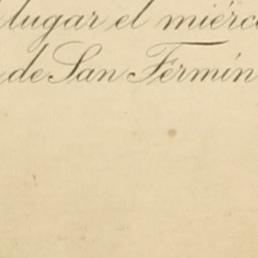 lugar el miérc
de San Fermín